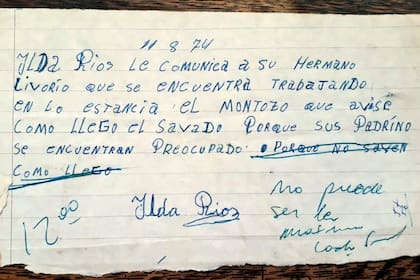 11 8 74
ILDA RIOS LE COMUNICA A SU HERMANO
LIVORIO QUE SE ENCUENTRA TRABAJANDO
EN LO ESTANCIA EL MONTOZO QUE AVISE
COMO LLEGO EL SAVADO PORQUE SUS PADRINO
SE ENCUENTRAN PREOCUPADO. O PORQUE NO SAVEN
COMO LLEGO
Ilda Rios
12,00
no puede
ser la